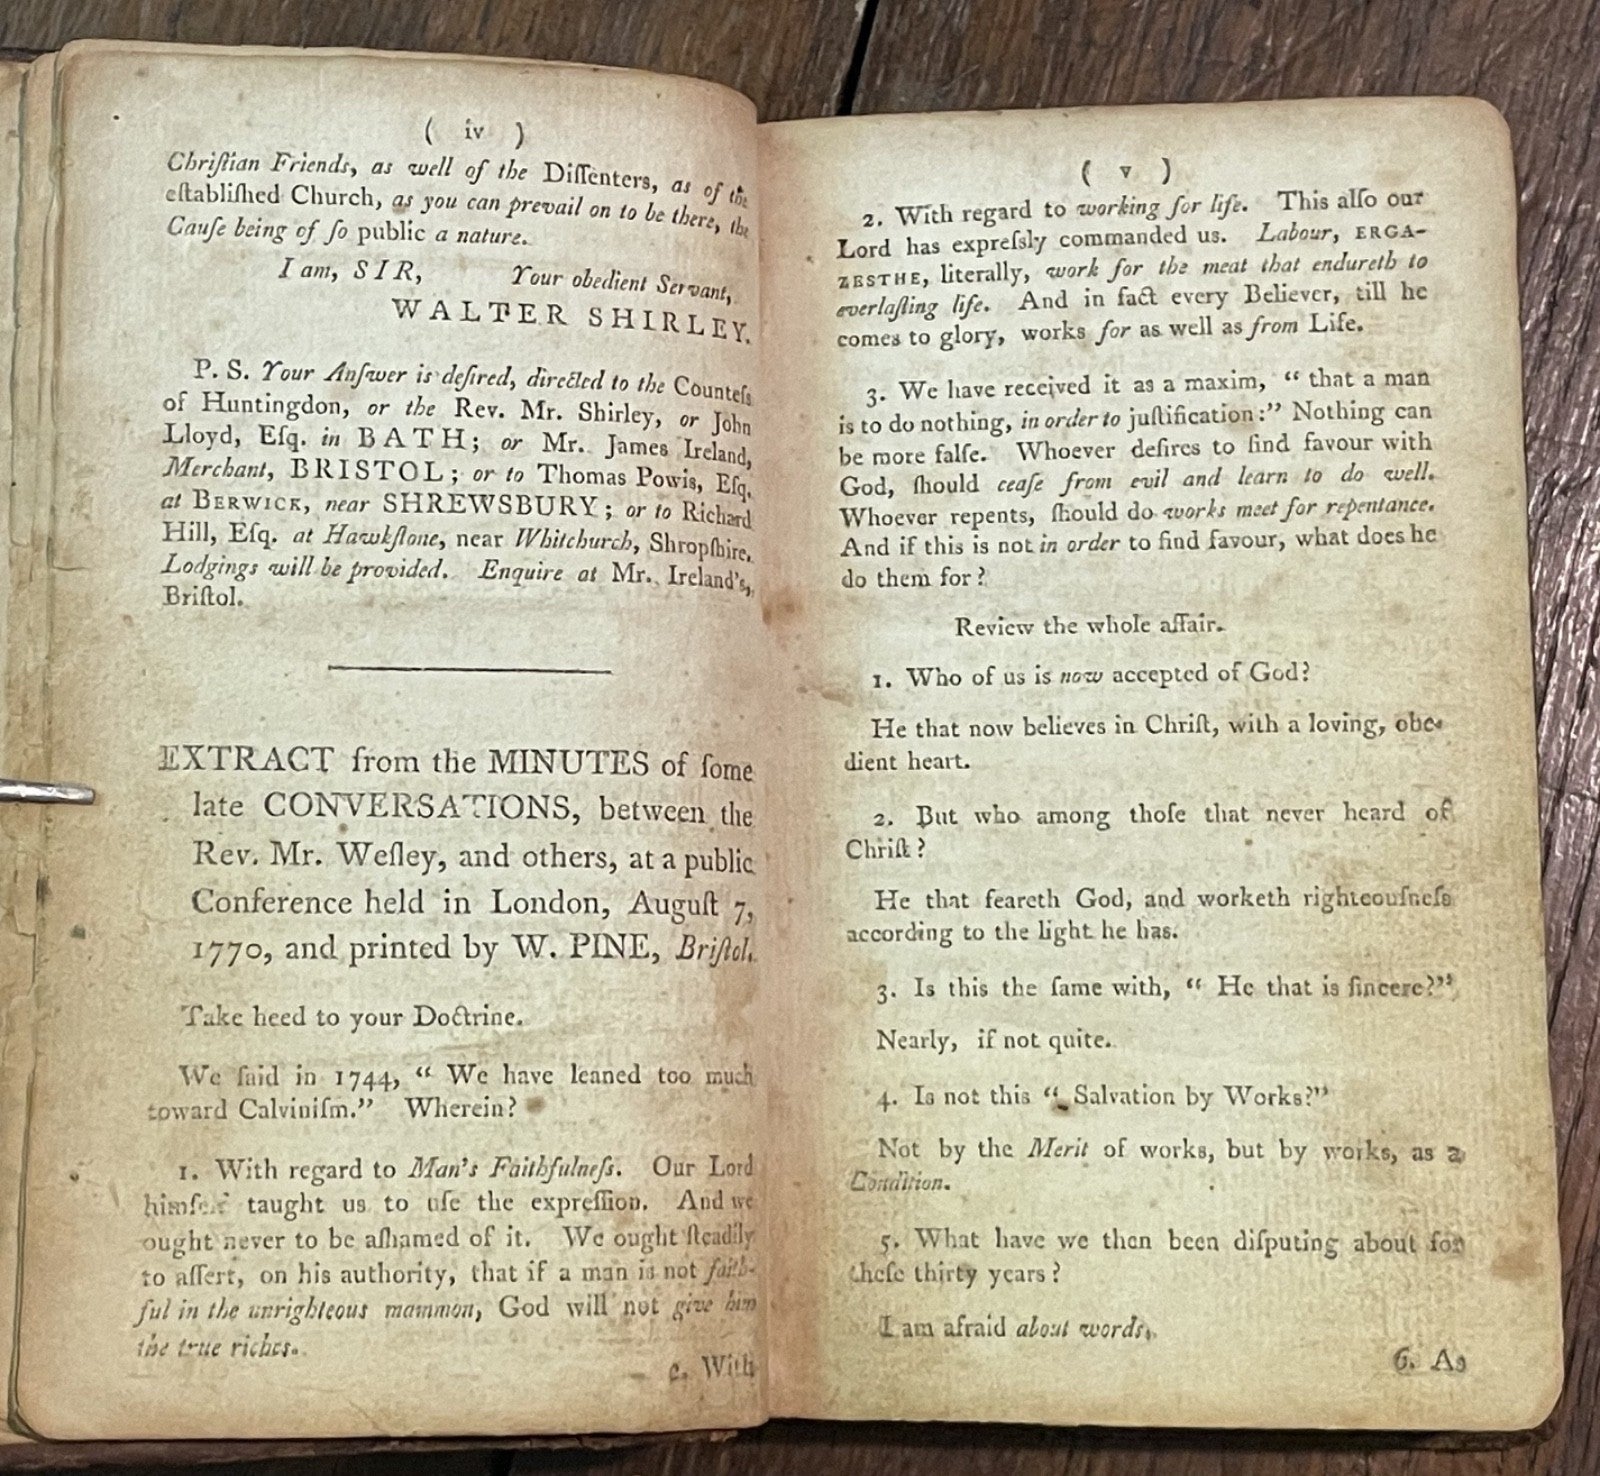 ( iv )
Chriſtian Friends, as well of the Diſſenters, as of the
eſtabliſhed Church, as you can prevail on to be there, the
Cauſe being of ſo public a nature.
I am, SIR, Your obedient Servant,
WALTER SHIRLEY.
P. S. Your Anſwer is deſired, directed to the Counteſs
of Huntingdon, or the Rev. Mr. Shirley, or John
Lloyd, Eſq. in BATH; or Mr. James Ireland,
Merchant, BRISTOL; or to Thomas Powis, Eſq.
at BERWICK, near SHREWSBURY; or to Richard
Hill, Eſq. at Hawkſtone, near Whitchurch, Shropſhire.
Lodgings will be provided. Enquire at Mr. Ireland's,
Briſtol.
EXTRACT from the MINUTES of ſome
late CONVERSATIONS, between the
Rev. Mr. Weſley, and others, at a public
Conference held in London, Auguſt 7,
1770, and printed by W. PINE, Briſtol.
Take heed to your Doctrine.
We ſaid in 1744, “ We have leaned too much
toward Calviniſm.” Wherein?
1. With regard to Man's Faithfulneſs. Our Lord
himſelf taught us to uſe the expreſſion. And we
ought never to be aſhamed of it. We ought ſteadily
to aſſert, on his authority, that if a man is not faith-
ful in the unrighteous mammon, God will not give him
the true riches.
2. With
( v )
2. With regard to working for life. This alſo our
Lord has expreſsly commanded us. Labour, ERGA-
ZESTHE, literally, work for the meat that endureth to
everlaſting life. And in fact every Believer, till he
comes to glory, works for as well as from Life.
3. We have received it as a maxim, “ that a man
is to do nothing, in order to juſtification:” Nothing can
be more falſe. Whoever deſires to find favour with
God, ſhould ceaſe from evil and learn to do well.
Whoever repents, ſhould do works meet for repentance.
And if this is not in order to find favour, what does he
do them for?
Review the whole affair.
1. Who of us is now accepted of God?
He that now believes in Chriſt, with a loving, obe-
dient heart.
2. But who among thoſe that never heard of
Chriſt?
He that feareth God, and worketh righteouſneſs
according to the light he has.
3. Is this the ſame with, “ He that is ſincere?”
Nearly, if not quite.
4. Is not this “ Salvation by Works?”
Not by the Merit of works, but by works, as a
Condition.
5. What have we then been diſputing about for
theſe thirty years?
I am afraid about words.
6. As